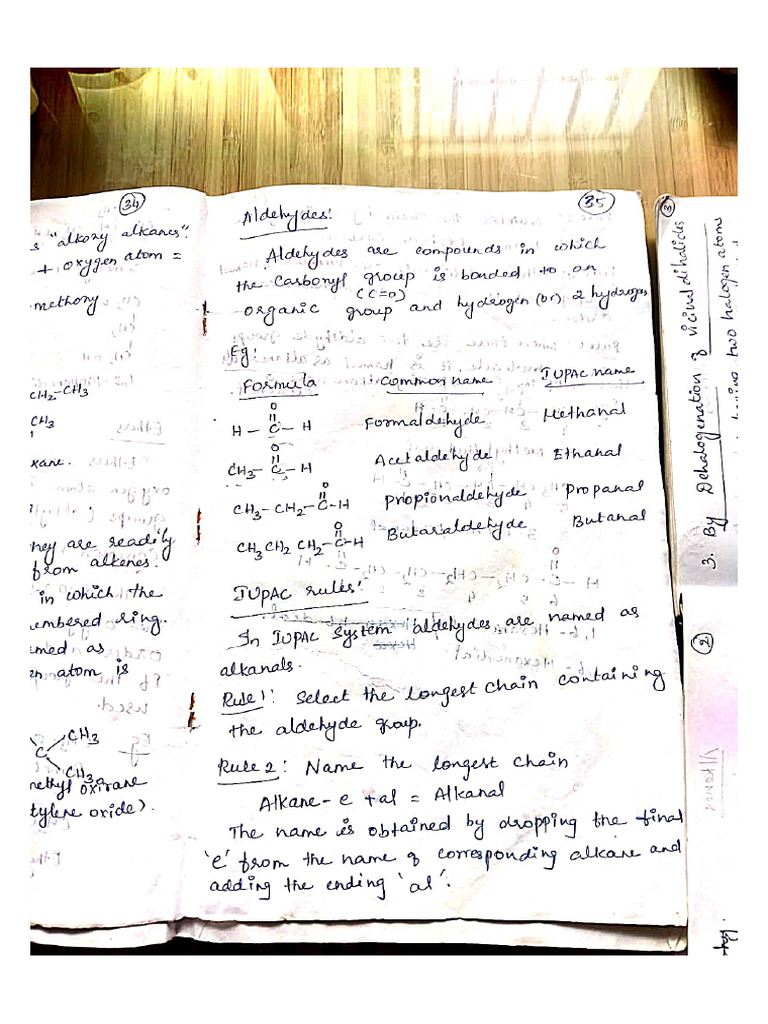 34
s "alkoxy alkanes".
+ oxygen atom =
methoxy
CH2-CH3
CH3
xane.
hey are readily
from alkenes.
in which the
embered ring.
amed as
en atom is
CH3
C
CH3
methyl oxirane
tylene oxide).
35
Aldehydes:
Aldehydes are compounds in which
the carbonyl group is bonded to an
(C=O)
organic group and hydrogen (or) 2 hydrogen
Eg:
Formula Common name IUPAC name
O
H - C - H Formaldehyde Methanal
O
CH3 - C - H Acetaldehyde Ethanal
O
CH3 - CH2 - C - H Propionaldehyde Propanal
O
CH3 CH2 CH2 - C - H Butaraldehyde Butanal
IUPAC rules:
In IUPAC System aldehydes are named as
alkanals.
Rule 1: Select the longest chain containing
the aldehyde group.
Rule 2: Name the longest chain
Alkane - e + al = Alkanal
The name is obtained by dropping the final
'e' from the name of corresponding alkane and
adding the ending 'al'.
3
3. By Dehalogenation of vicinal dihalides
two halogen atoms
2